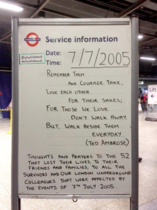 Service information
Date: 7/7/2005
Time:
REMEMBER THEM
AND COURAGE TAKE,
LOVE EACH OTHER
FOR THEIR SAKES,
FOR THOSE WE LOVE
DON'T WALK AWAY,
BUT, WALK BESIDE THEM
EVERYDAY
(TED AMBROSE)
THOUGHTS AND PRAYERS TO THE 52
THAT LOST THEIR LIVES TO THEIR
FRIENDS AND FAMILIES TO ALL THE
SURVIVORS AND OUR LONDON UNDERGROUND
COLLEAGUES THAT WERE AFFECTED BY
THE EVENTS OF 7TH JULY 2005